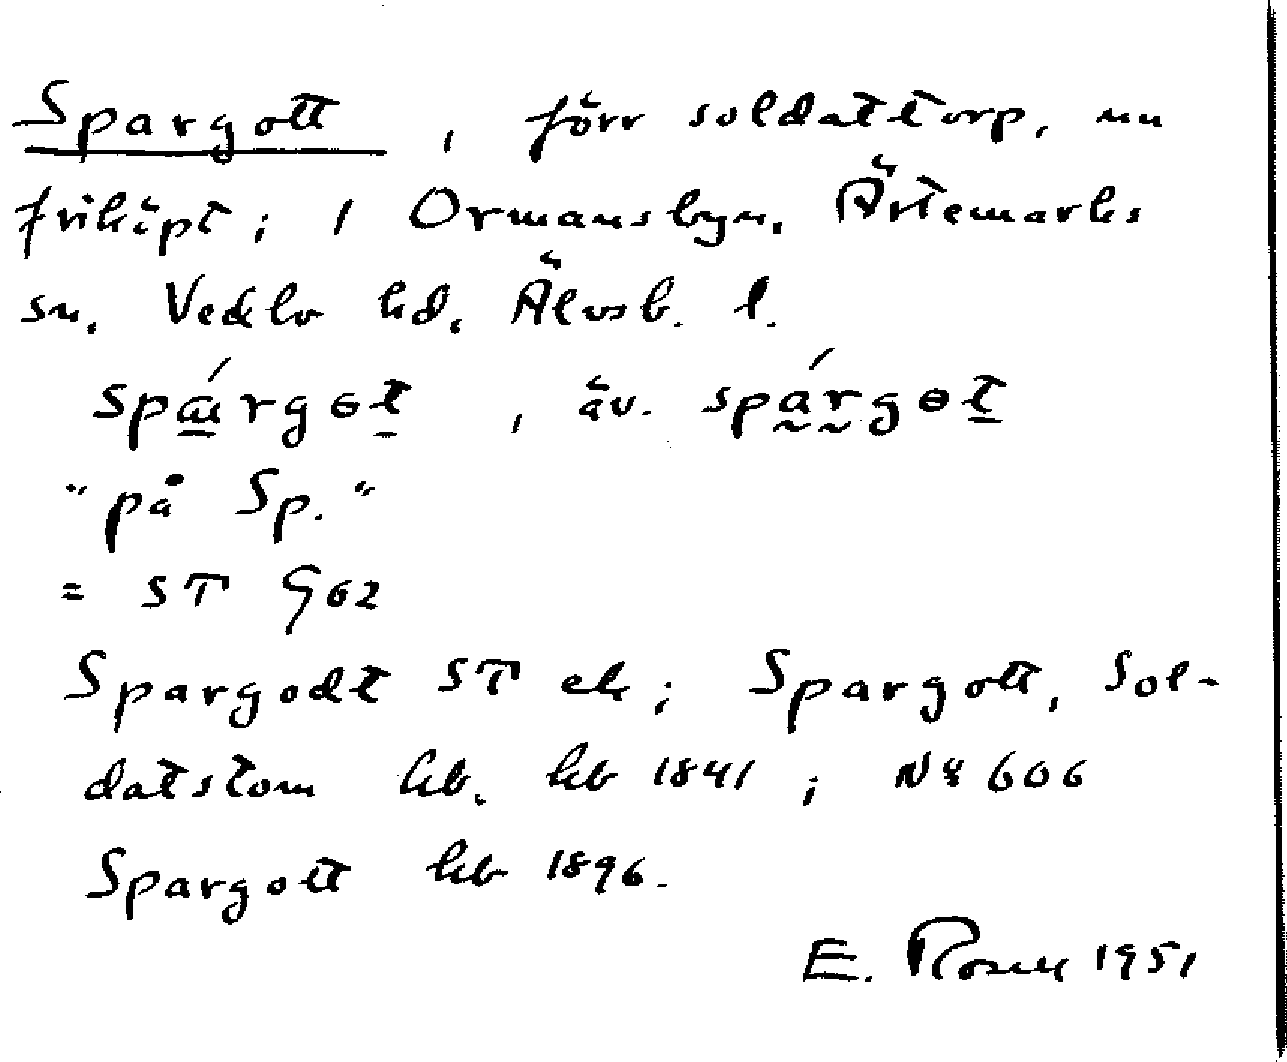 Spargott, förr soldattorp, nu
friköpt; i Ormansbyn, Ärtemarks
sn, Vedbo hd, Älvsb. l.
spárgɵt, äv. spárgɵt
"på Sp."
= ST G62
Spargodt ST ek; Spargott, Sol-
datstom hb. hb 1841; Nr 606
Spargott hb 1896.
E. Rosell 1951